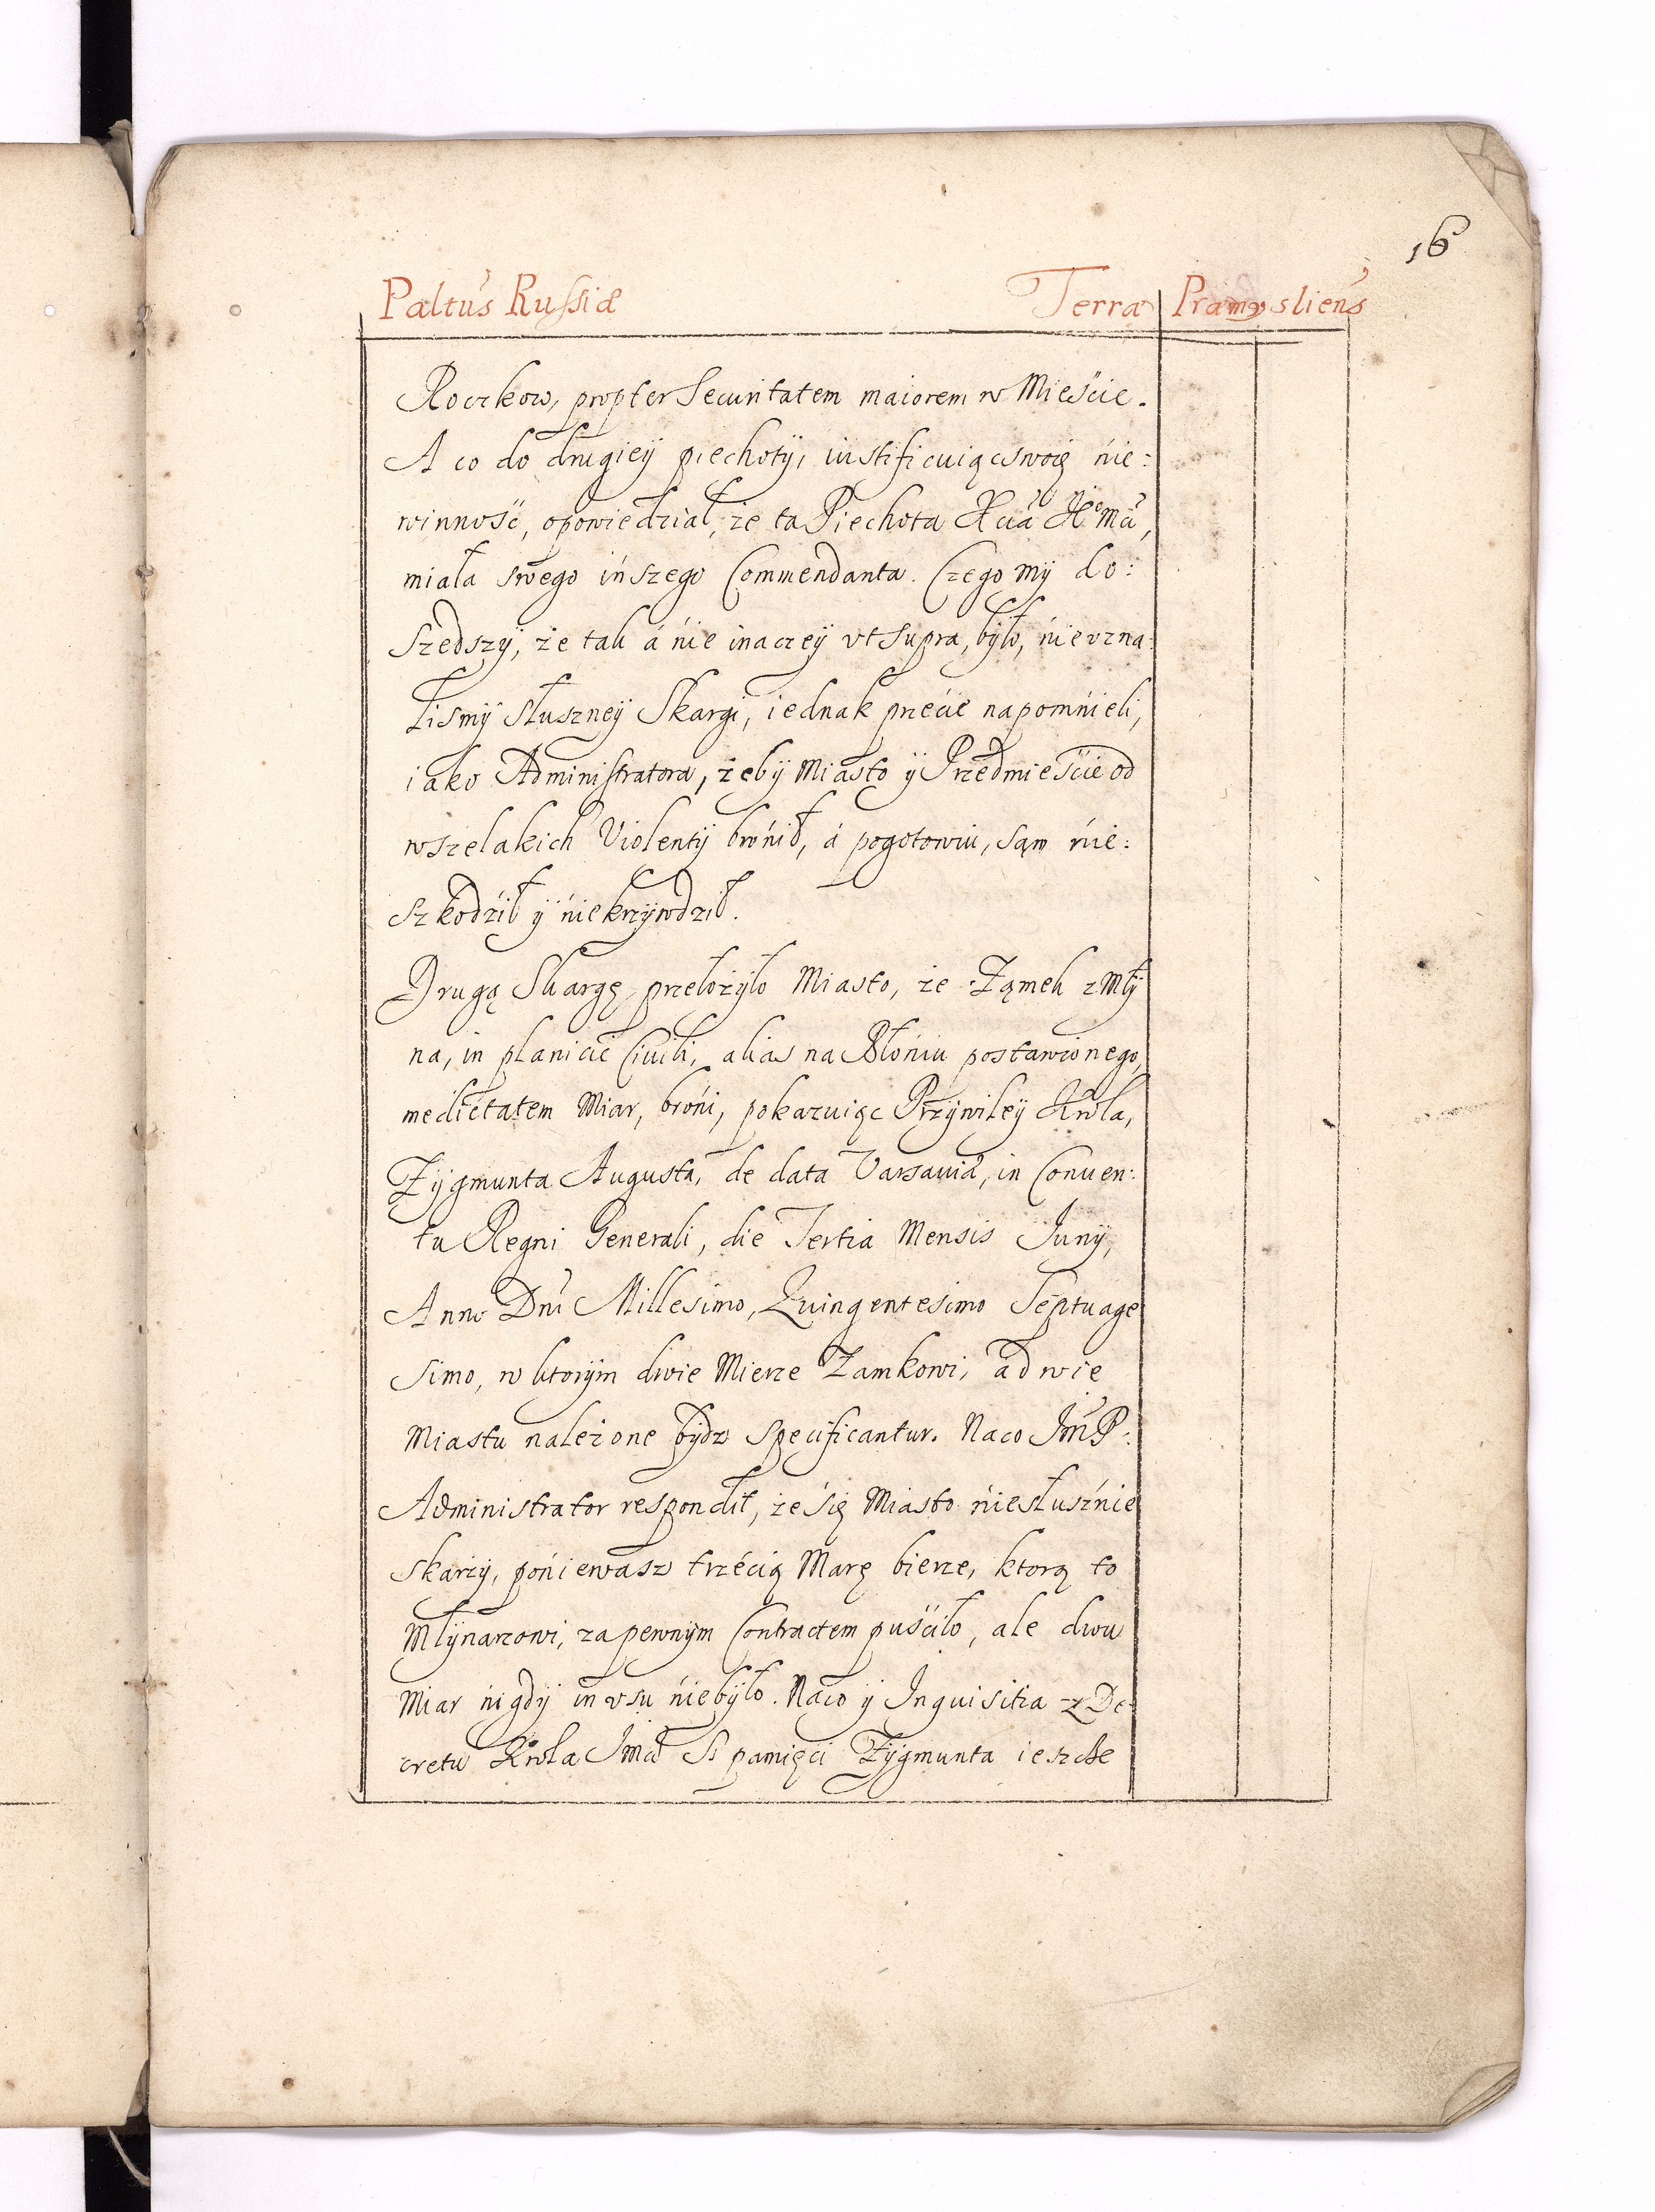 16
Paltus Russiæ Terra Præmysliens
Roczkow, propter Securitatem maiorem w Mieście.
A co do drugieÿ piechotÿ, iustificuiąc swoię nie:
winność, opowiedział, że ta Piechota
miała swego inszego Commendanta. Czego mÿ do:
szedszÿ, że tak á nie inaczeÿ vt supra, bÿło, nie vzna:
lismÿ słuszneÿ Skargi, iednak przećie napomnieli,
iako Administratora, żebÿ Miasto ÿ Przedmieście od
wszelakich Violentÿ bronił, á pogotowiu, sąm nie:
szkodził ÿ niekrzÿwdził.
Drugą Skargę przełożÿło Miasto, że Ząmek z Młÿ
na, in planicie Ciuili, alias na Błoniu postawionego,
medietatem Miar, broni, pokazuiąc Przÿwileÿ Krola,
Zÿgmunta Augusta, de data Varsauiæ, in Conuen:
tu Regni Generali, die Tertia Mensis Junÿ,
Anno Dni Millesimo, Quingentesimo Septuage
simo, w ktorÿm dwie Mierze Zamkowi, a dwie
Miastu należone bÿdz specificantur. Na co Jm P:
Administrator respondit, że się Miasto niesłusznie
skarżÿ, poniewasz trzećią Marę bierze, ktorą to
Młÿnarzowi, za pewnÿm Contractem puściło, ale dwu
Miar nigdÿ in vsu niebÿło. Na co ÿ Inquisitia z De:
cretu Krola Jmci S pamięci Zÿgmunta ieszcze